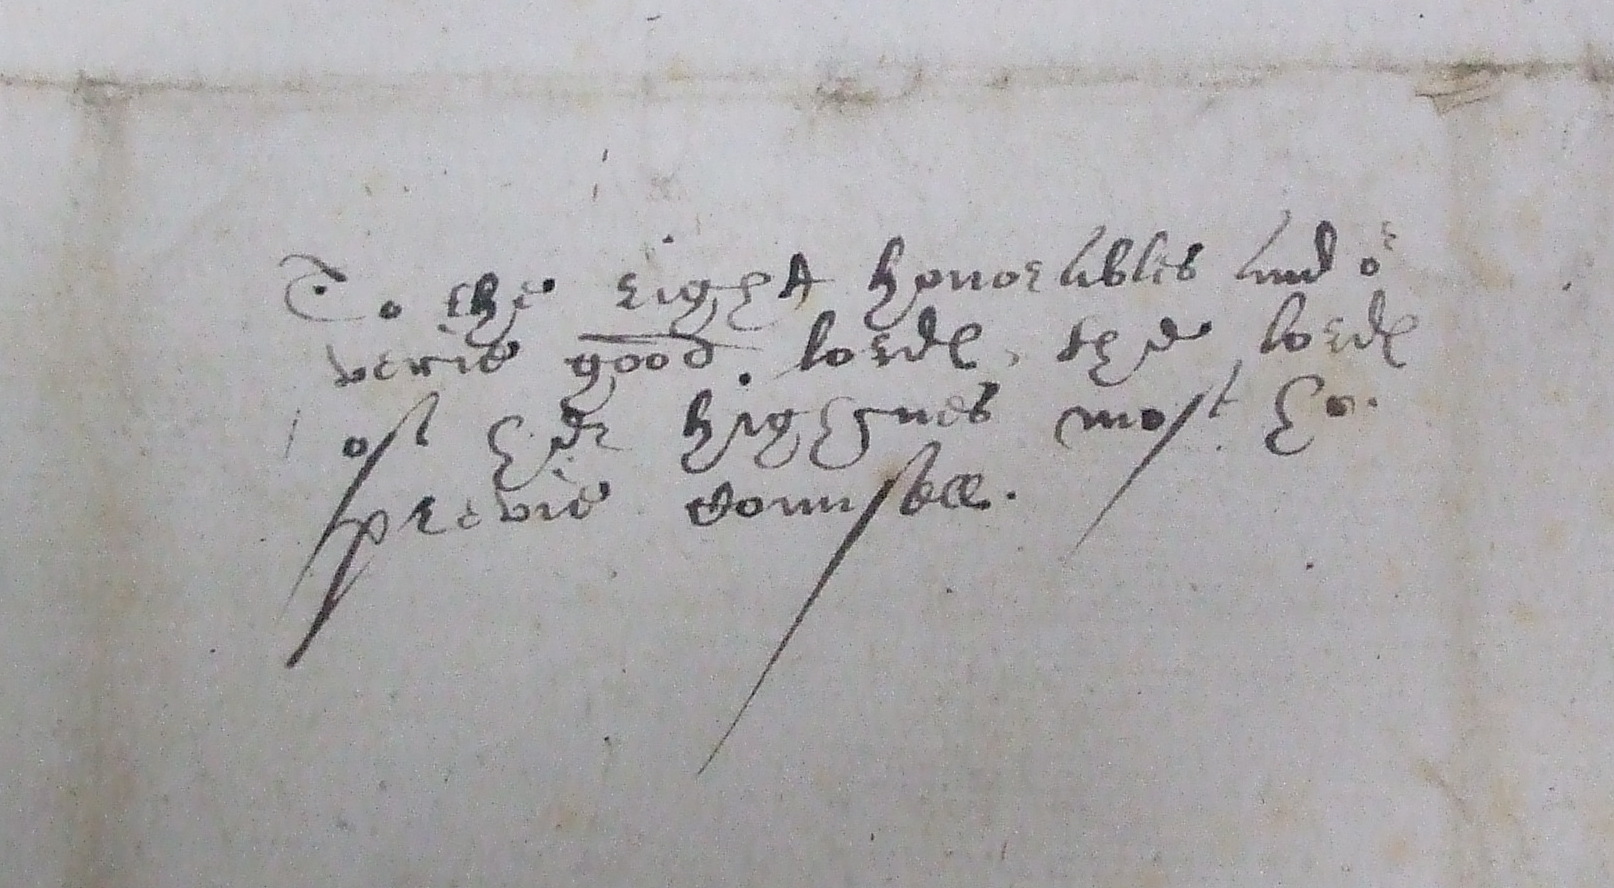 To the right honorables and oʳ
verie good lordes, the lordes
off her highnes most ho.
previe Counsell.